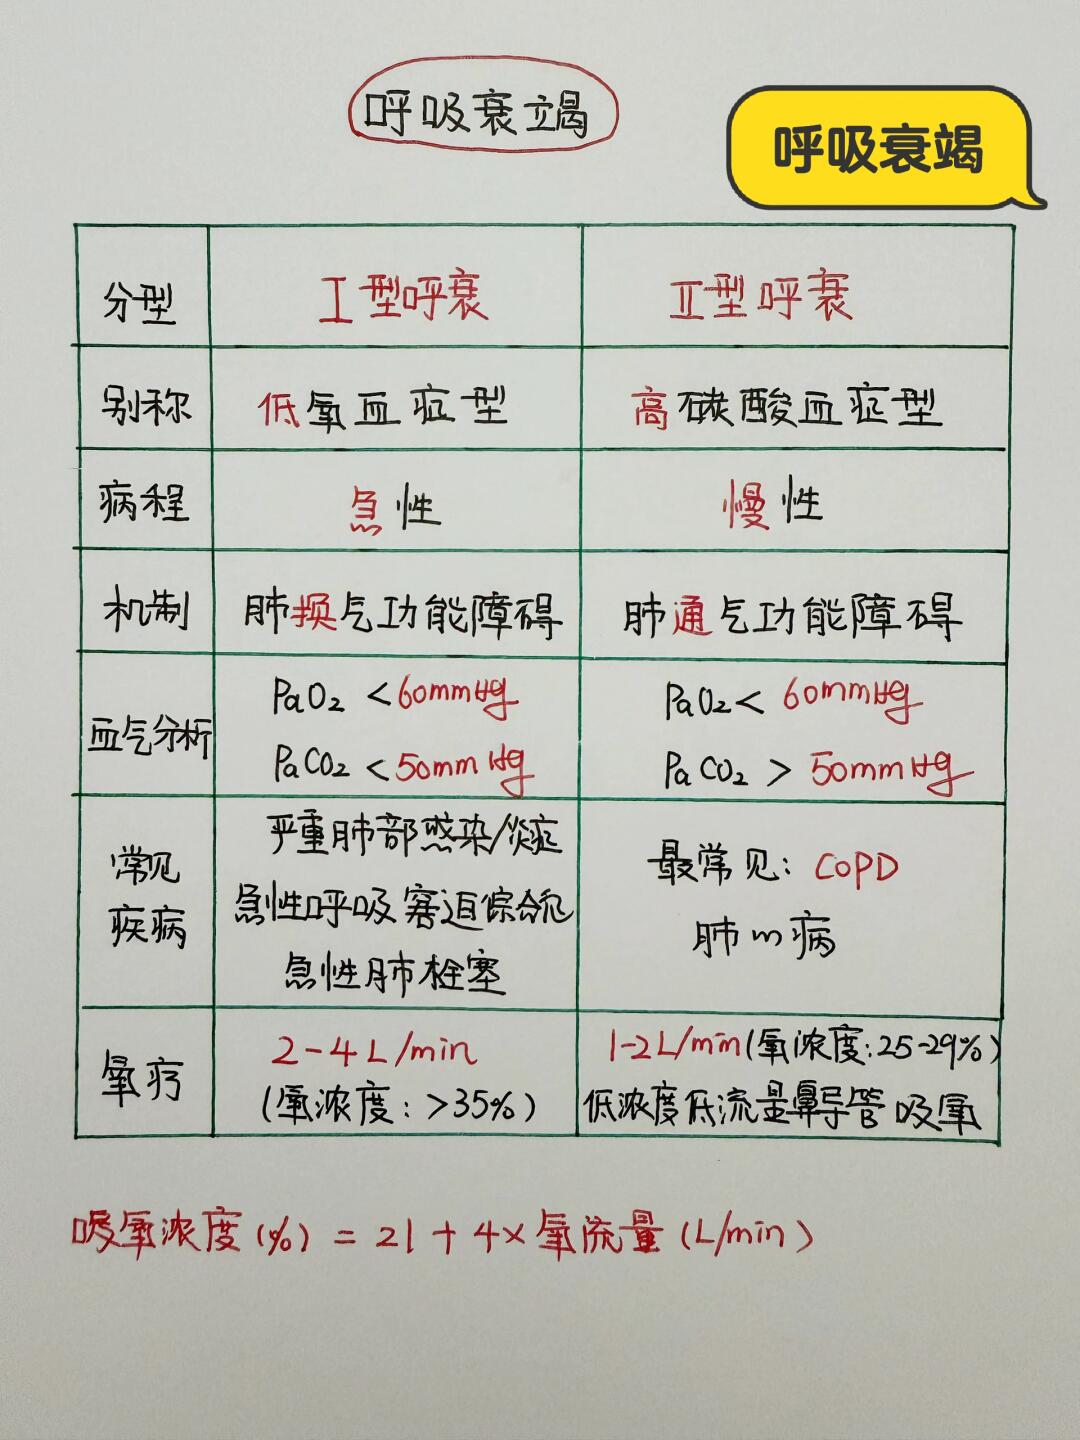 呼吸衰竭
呼吸衰竭
分型 I型呼衰 II型呼衰
别称 低氧血症型 高碳酸血症型
病程 急性 慢性
机制 肺换气功能障碍 肺通气功能障碍
血气分析
PaO₂ <60mmHg
PaCO₂ <50mmHg
PaO₂< 60mmHg
PaCO₂ > 50mmHg
常见
疾病
严重肺部感染/炎症
急性呼吸窘迫综合征
急性肺栓塞
最常见: COPD
肺心病
氧疗
2-4L/min
(氧浓度:>35%)
1-2L/min(氧浓度:25-29%)
低浓度低流量鼻导管吸氧
吸氧浓度(%) = 21 + 4×氧流量(L/min)